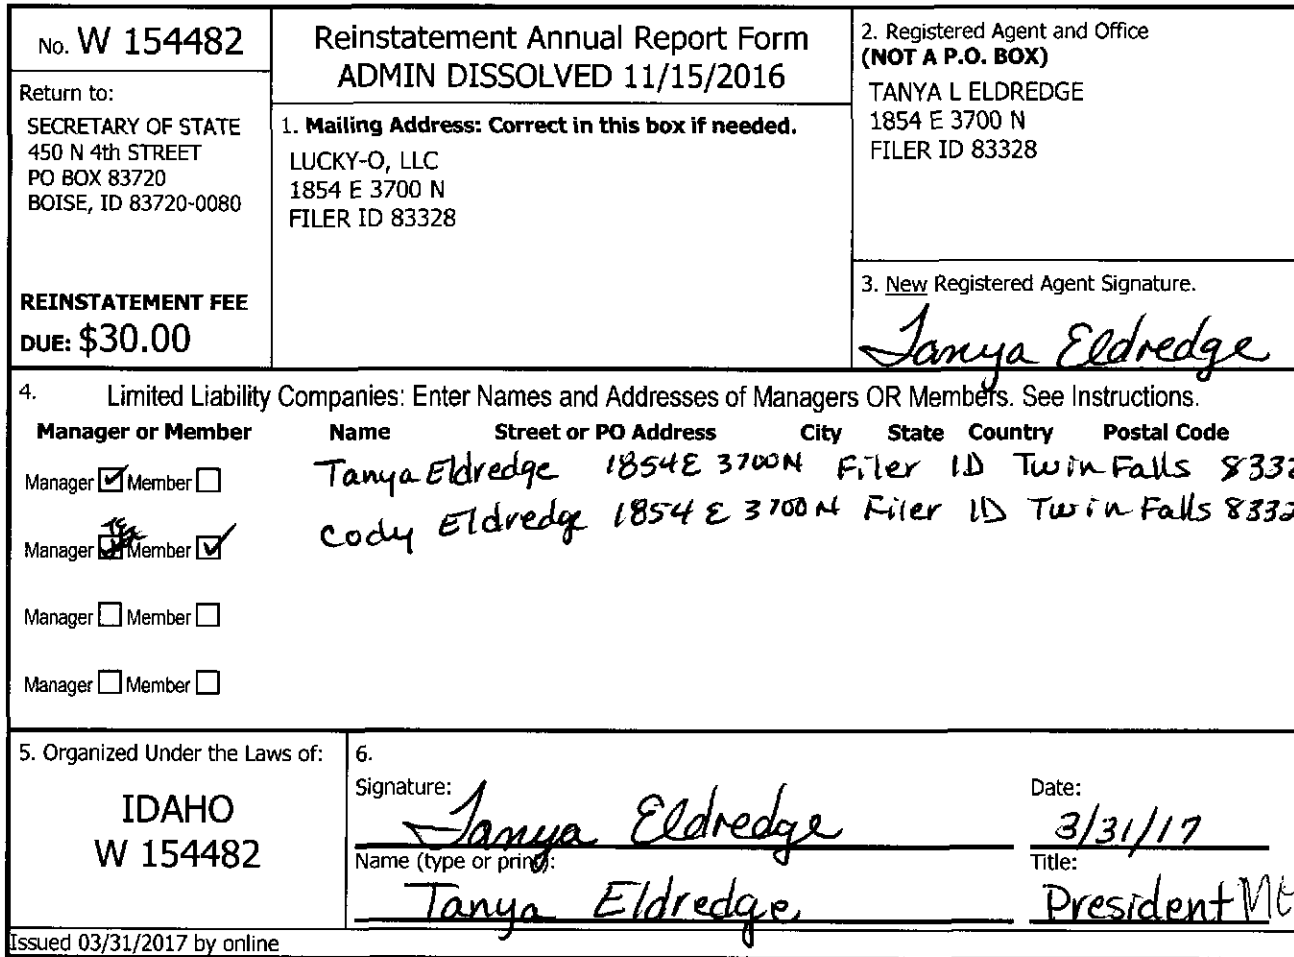 No. W 154482
Return to:
SECRETARY OF STATE
450 N 4th STREET
PO BOX 83720
BOISE, ID 83720-0080
REINSTATEMENT FEE
DUE: $30.00
Reinstatement Annual Report Form
ADMIN DISSOLVED 11/15/2016
1. Mailing Address: Correct in this box if needed.
LUCKY-O, LLC
1854 E 3700 N
FILER ID 83328
2. Registered Agent and Office
(NOT A P.O. BOX)
TANYA L ELDREDGE
1854 E 3700 N
FILER ID 83328
3. New Registered Agent Signature.
Tanya Eldredge
4. Limited Liability Companies: Enter Names and Addresses of Managers OR Members. See Instructions.
Manager or Member Name Street or PO Address City State Country Postal Code
Manager Member Tanya Eldredge 1854 E 3700 N Filer ID Twin Falls 8332
Manager Member Cody Eldredge 1854 E 3700 N Filer ID Twin Falls 8332
Manager Member
Manager Member
5. Organized Under the Laws of:
IDAHO
W 154482
6.
Signature: Tanya Eldredge
Date: 3/31/17
Name (type or print): Tanya Eldredge
Title: President
Issued 03/31/2017 by online